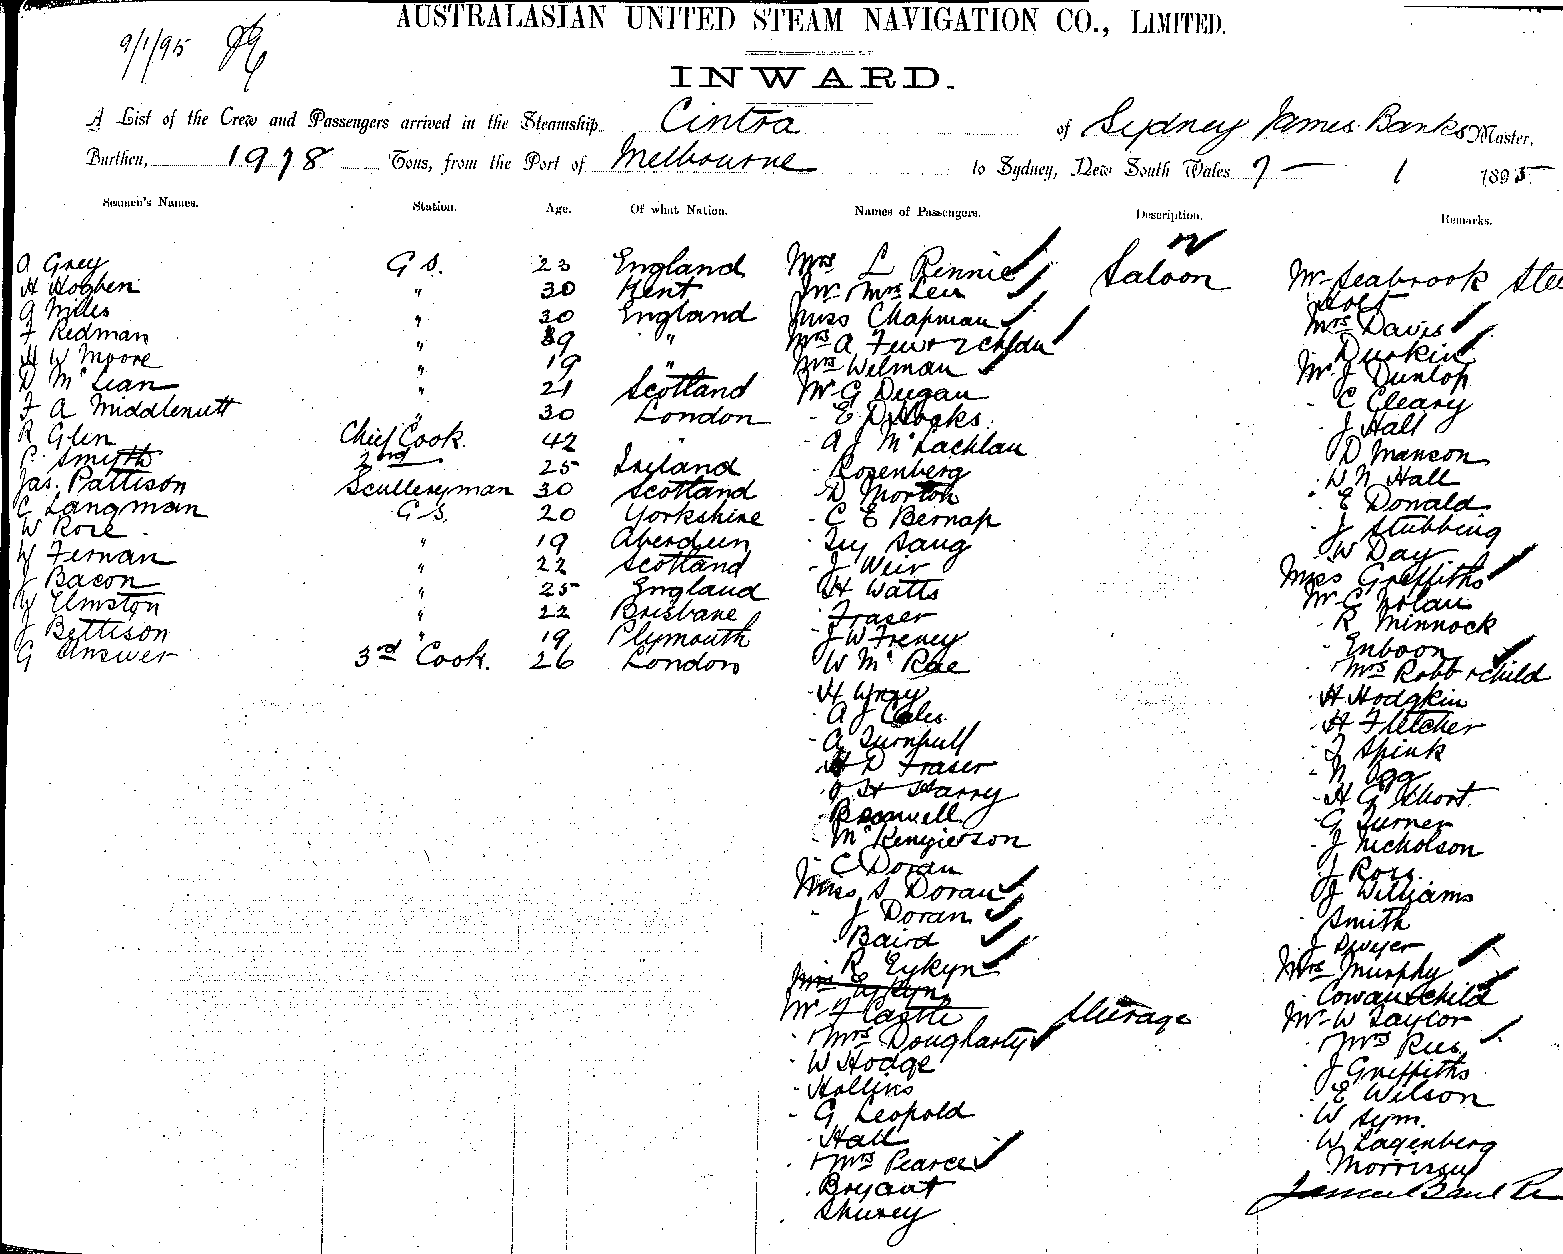 AUSTRALASIAN UNITED STEAM NAVIGATION CO., LIMITED.
9/1/95
INWARD.
A List of the Crew and Passengers arrived in the Steamship Cintra of Sydney James Banks Master,
Burthen, 1978 Tons, from the Port of Melbourne to Sydney, New South Wales 7 - 1 1895
Seamen's Names. Station. Age. Of what Nation. Names of Passengers. Description. Remarks.
A Grey G S. 23 England
H Hogben " 30 Kent
G Miles " 30 England
F Redman " 39 "
H W Moore " 19 "
D McLean " 21 Scotland
F A Middlenutt " 30 London
R Glen Chief Cook. 42 "
C Smyth 2nd 25 Ireland
Jas. Pattison Sculleryman 30 Scotland
C Langman G S. 20 Yorkshire
W Rose " 19 Aberdeen
W Fernan " 22 Scotland
J Bacon " 25 England
W Elmston " 22 Brisbane
J Bettison " 19 Plymouth
G Answer 3rd Cook. 26 London
Mrs L Rennie Saloon
Mr & Mrs Levi
Miss Chapman
Mrs A Few & 2 childn
Mrs Welman
Mr G Dugan
- E D Hooks
- A J McLachlan
Rosenberg
- D Morton
- C E Bernap
- Sang
- J Weir
- H Watts
- Fraser
- J W Freney
- W McRae
- H Wray
- A J Coles
- A Turnbull
- H D Fraser
- J H Harry
- Bramwell
- McKengierson
- C Doran
Miss S Doran
- J Doran
- Baird
- R Eykyn
Mrs E Eykyn
Mr F Castle Steerage
- & Mrs Dougharty
- W Hodge
- Hollins
- G Leopold
- Hall
- & Mrs Pearce
- Bryant
- Shurey
Mr Seabrook Stee
Holt
Mrs Davis
Durkin
Mr J Dunlop
- C Cleary
- J Hall
- D Manson
- W N Hall
- E Donald
- J Stubbing
- W Day
Miss Griffiths
Mr C Nolan
- R Minnock
- Enboon
- Mrs Robb & child
- H Hodgkin
- H Fletcher
- J Spink
- N Ogg
- H G Short
- G Turner
- J Nicholson
- J Ross
- J Williams
- Smith
- J Dwyer
Mrs Murphy
- Cowan & child
Mr W Taylor
- & Mrs Rees
- J Griffiths
- E Wilson
- W Sym.
- W Lagenberg
- Morrison